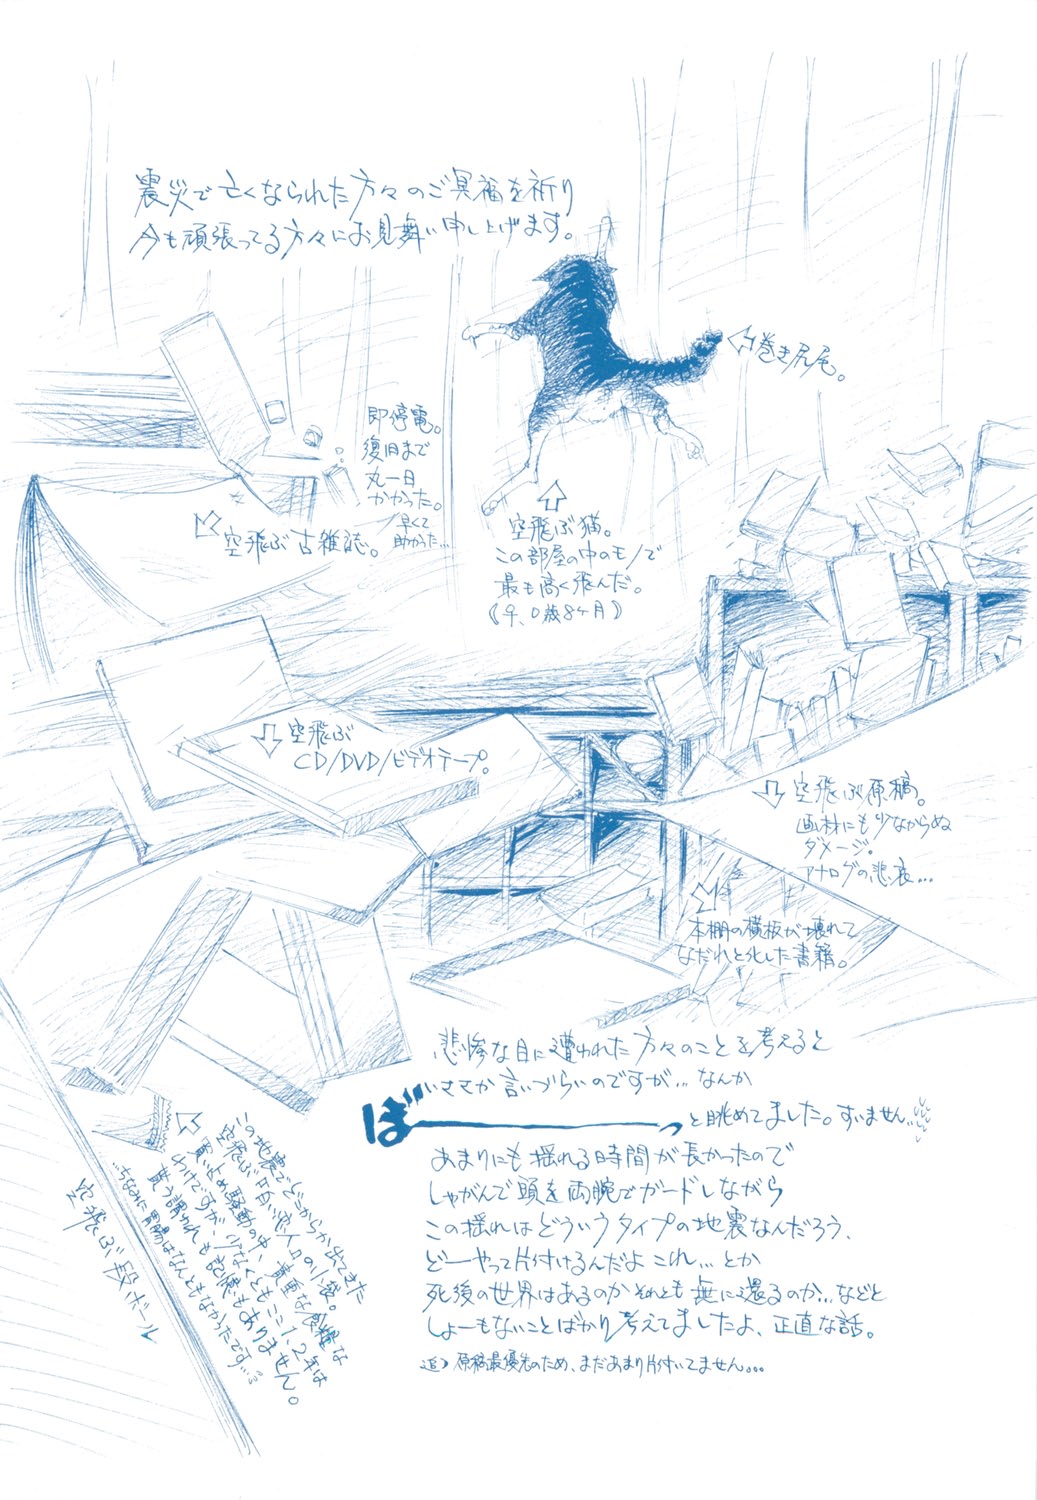 震災で亡くなられた方々のご冥福を祈り
今も頑張ってる方々にお見舞い申し上げます。
巻き尻尾。
即停電。
復旧まで
丸一日
かかった。
早くて
助かった…
空飛ぶ古雑誌。
空飛ぶ猫。
この部屋の中のモノで
最も高く飛んだ。
《♀、0歳8ヶ月》
空飛ぶ
CD/DVD/ビデオテープ。
空飛ぶ原稿。
画材にも少なからぬ
ダメージ。
アナログの悲哀…
本棚の横板が壊れて
なだれと化した書籍。
悲惨な目に遭われた方々のことを考えると
いささか言いづらいのですが…なんか
ぼ――――っと眺めてました。すいません…
あまりにも揺れる時間が長かったので
しゃがんで頭を両腕でガードしながら
この揺れはどういうタイプの地震なんだろう、
どーやって片付けるんだよこれ…とか
死後の世界はあるのかそれとも無に還るのか…などと
しょーもないことばかり考えてましたよ、正直な話。
追）原稿最優先のため、まだあまり片付いてません…
この地震でどこからか出てきた
空飛ぶ甘い恋人の小袋。
買い占め騒動の中、貴重な食糧な
わけですが、少なくともここ1、2年は
貰う謂われも記憶もありません。
…ちなみに胃腸はなんともなかったです…
空飛ぶ段ボール